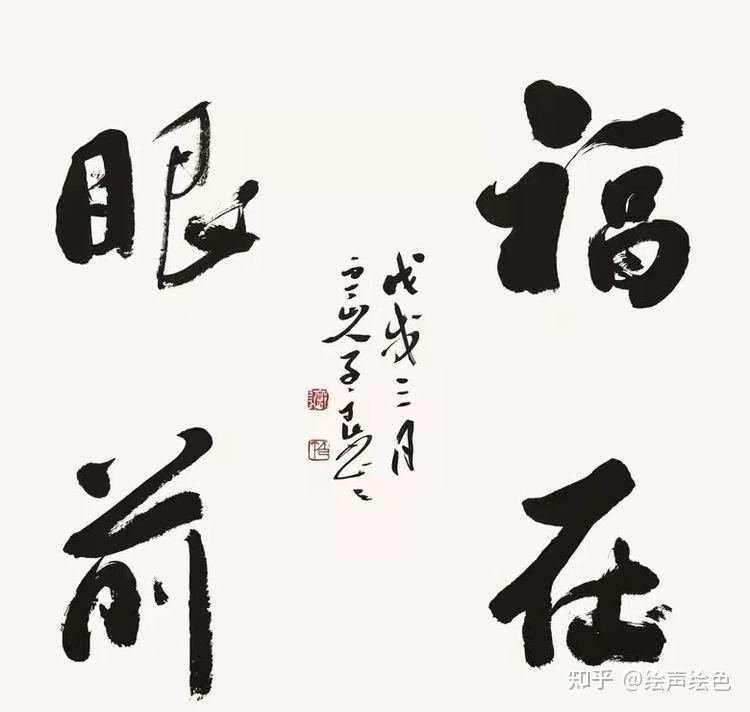 福在
眼前
戊戌三月
知乎 @绘声绘色